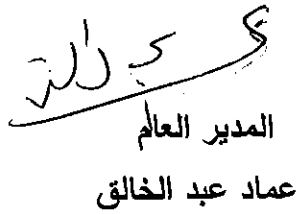 المدير العام
عماد عبد الخالق